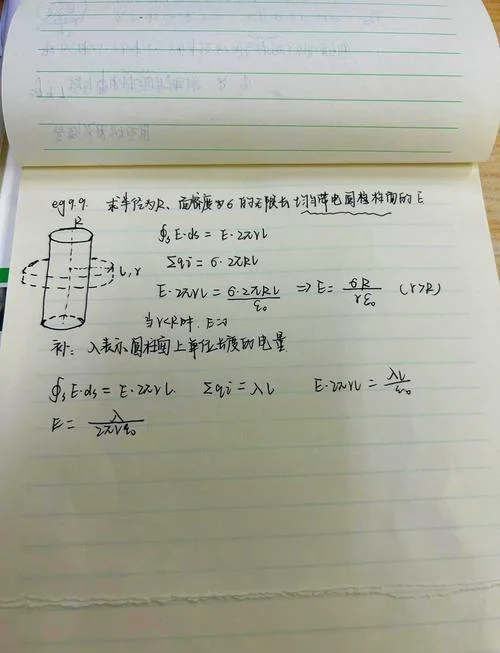 eg 9.9. 求半径为R、面密度为σ的无限长均匀带电圆柱柱面的E
R
l, r
∮s E·ds = E·2πrl
Σqi = σ·2πRl
E·2πrl = σ·2πRl/ε₀ ⇒ E = σR/rε₀ (r>R)
当r<R时, E=0
补: λ表示圆柱面上单位长度的电量.
∮s E·ds = E·2πrl. Σqi = λl E·2πrl = λl/ε₀
E = λ/2πrε₀